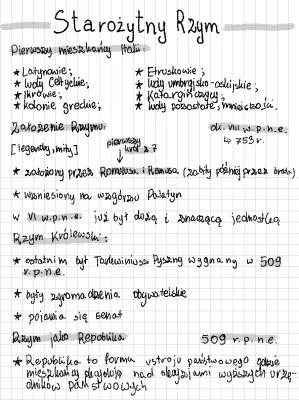 Starożytny Rzym
Pierwsi mieszkańcy Italii:
★ Latynowie; ★ Etruskowie;
★ ludy Celtyckie; ★ ludy umbryjsko-oskijskie;
★ Ilirowie; ★ Katargińczycy;
★ kolonie greckie; ★ ludy pozostałe, mniejszości.
Założenie Rzymu: ok. VIII w.p.n.e.
↳ 753 r.
[legendy, mity] pierwszy król z 7
★ założony przez Romulusa i Remusa (zabity później przez brata)
★ wzniesiony na wzgórzu Palatyn
w VI w.p.n.e. już był dużą i znaczącą jednostką
Rzym Królewski:
★ ostatnim był Tarkwiniusz Pyszny wygnany w 509
r.p.n.e.
★ były zgromadzenia obywatelskie
★ pojawia się senat
Rzym jako Republika 509 r.p.n.e.
★ Republika to forma ustroju państwowego gdzie
mieszkańcy decydują nad obyczajami wyższych urzę-
dników państwowych